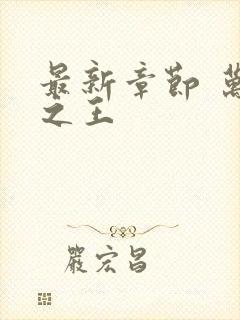 最新章節 萬
之王
嚴宏昌